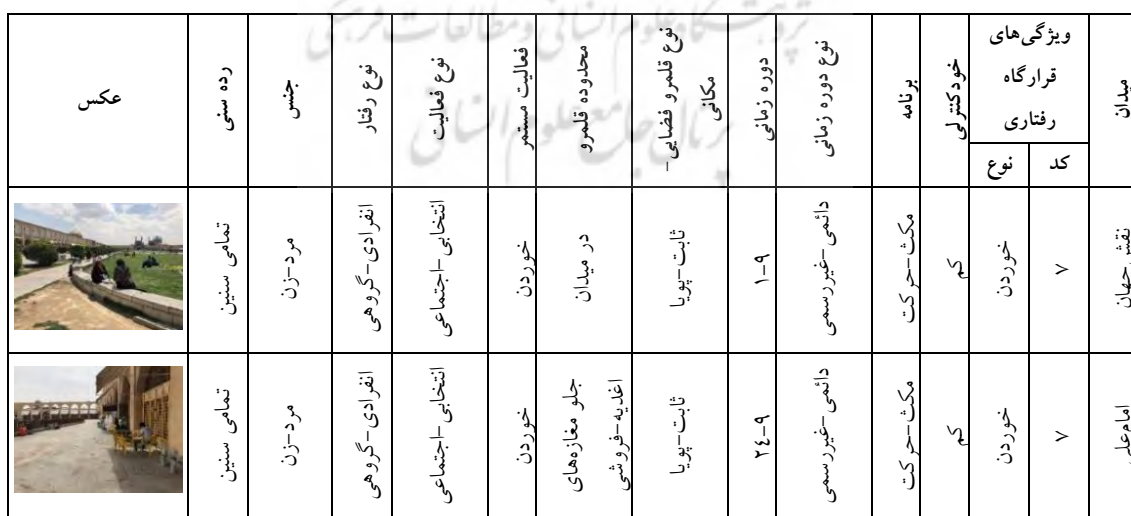 پژوهشگاه علوم انسانی و مطالعات فرهنگی
پرتال جامع علوم انسانی
میدان
ویژگی‌های قرارگاه رفتاری
کد
نوع
خودکنترلی
برنامه
نوع دوره زمانی
دوره زمانی
نوع قلمرو فضایی-مکانی
محدوده قلمرو
فعالیت مستمر
نوع فعالیت
نوع رفتار
جنس
رده سنی
عکس
نقش جهان
۷
خوردن
کم
مکث-حرکت
دائمی-غیررسمی
۱-۹
ثابت-پویا
در میدان
خوردن
انتخابی-اجتماعی
انفرادی-گروهی
مرد-زن
تمامی سنین
امام‌علی
۷
خوردن
کم
مکث-حرکت
دائمی-غیررسمی
۲٤-۹
ثابت-پویا
جلو مغازه‌های
اغذیه-فروشی
خوردن
انتخابی-اجتماعی
انفرادی-گروهی
مرد-زن
تمامی سنین